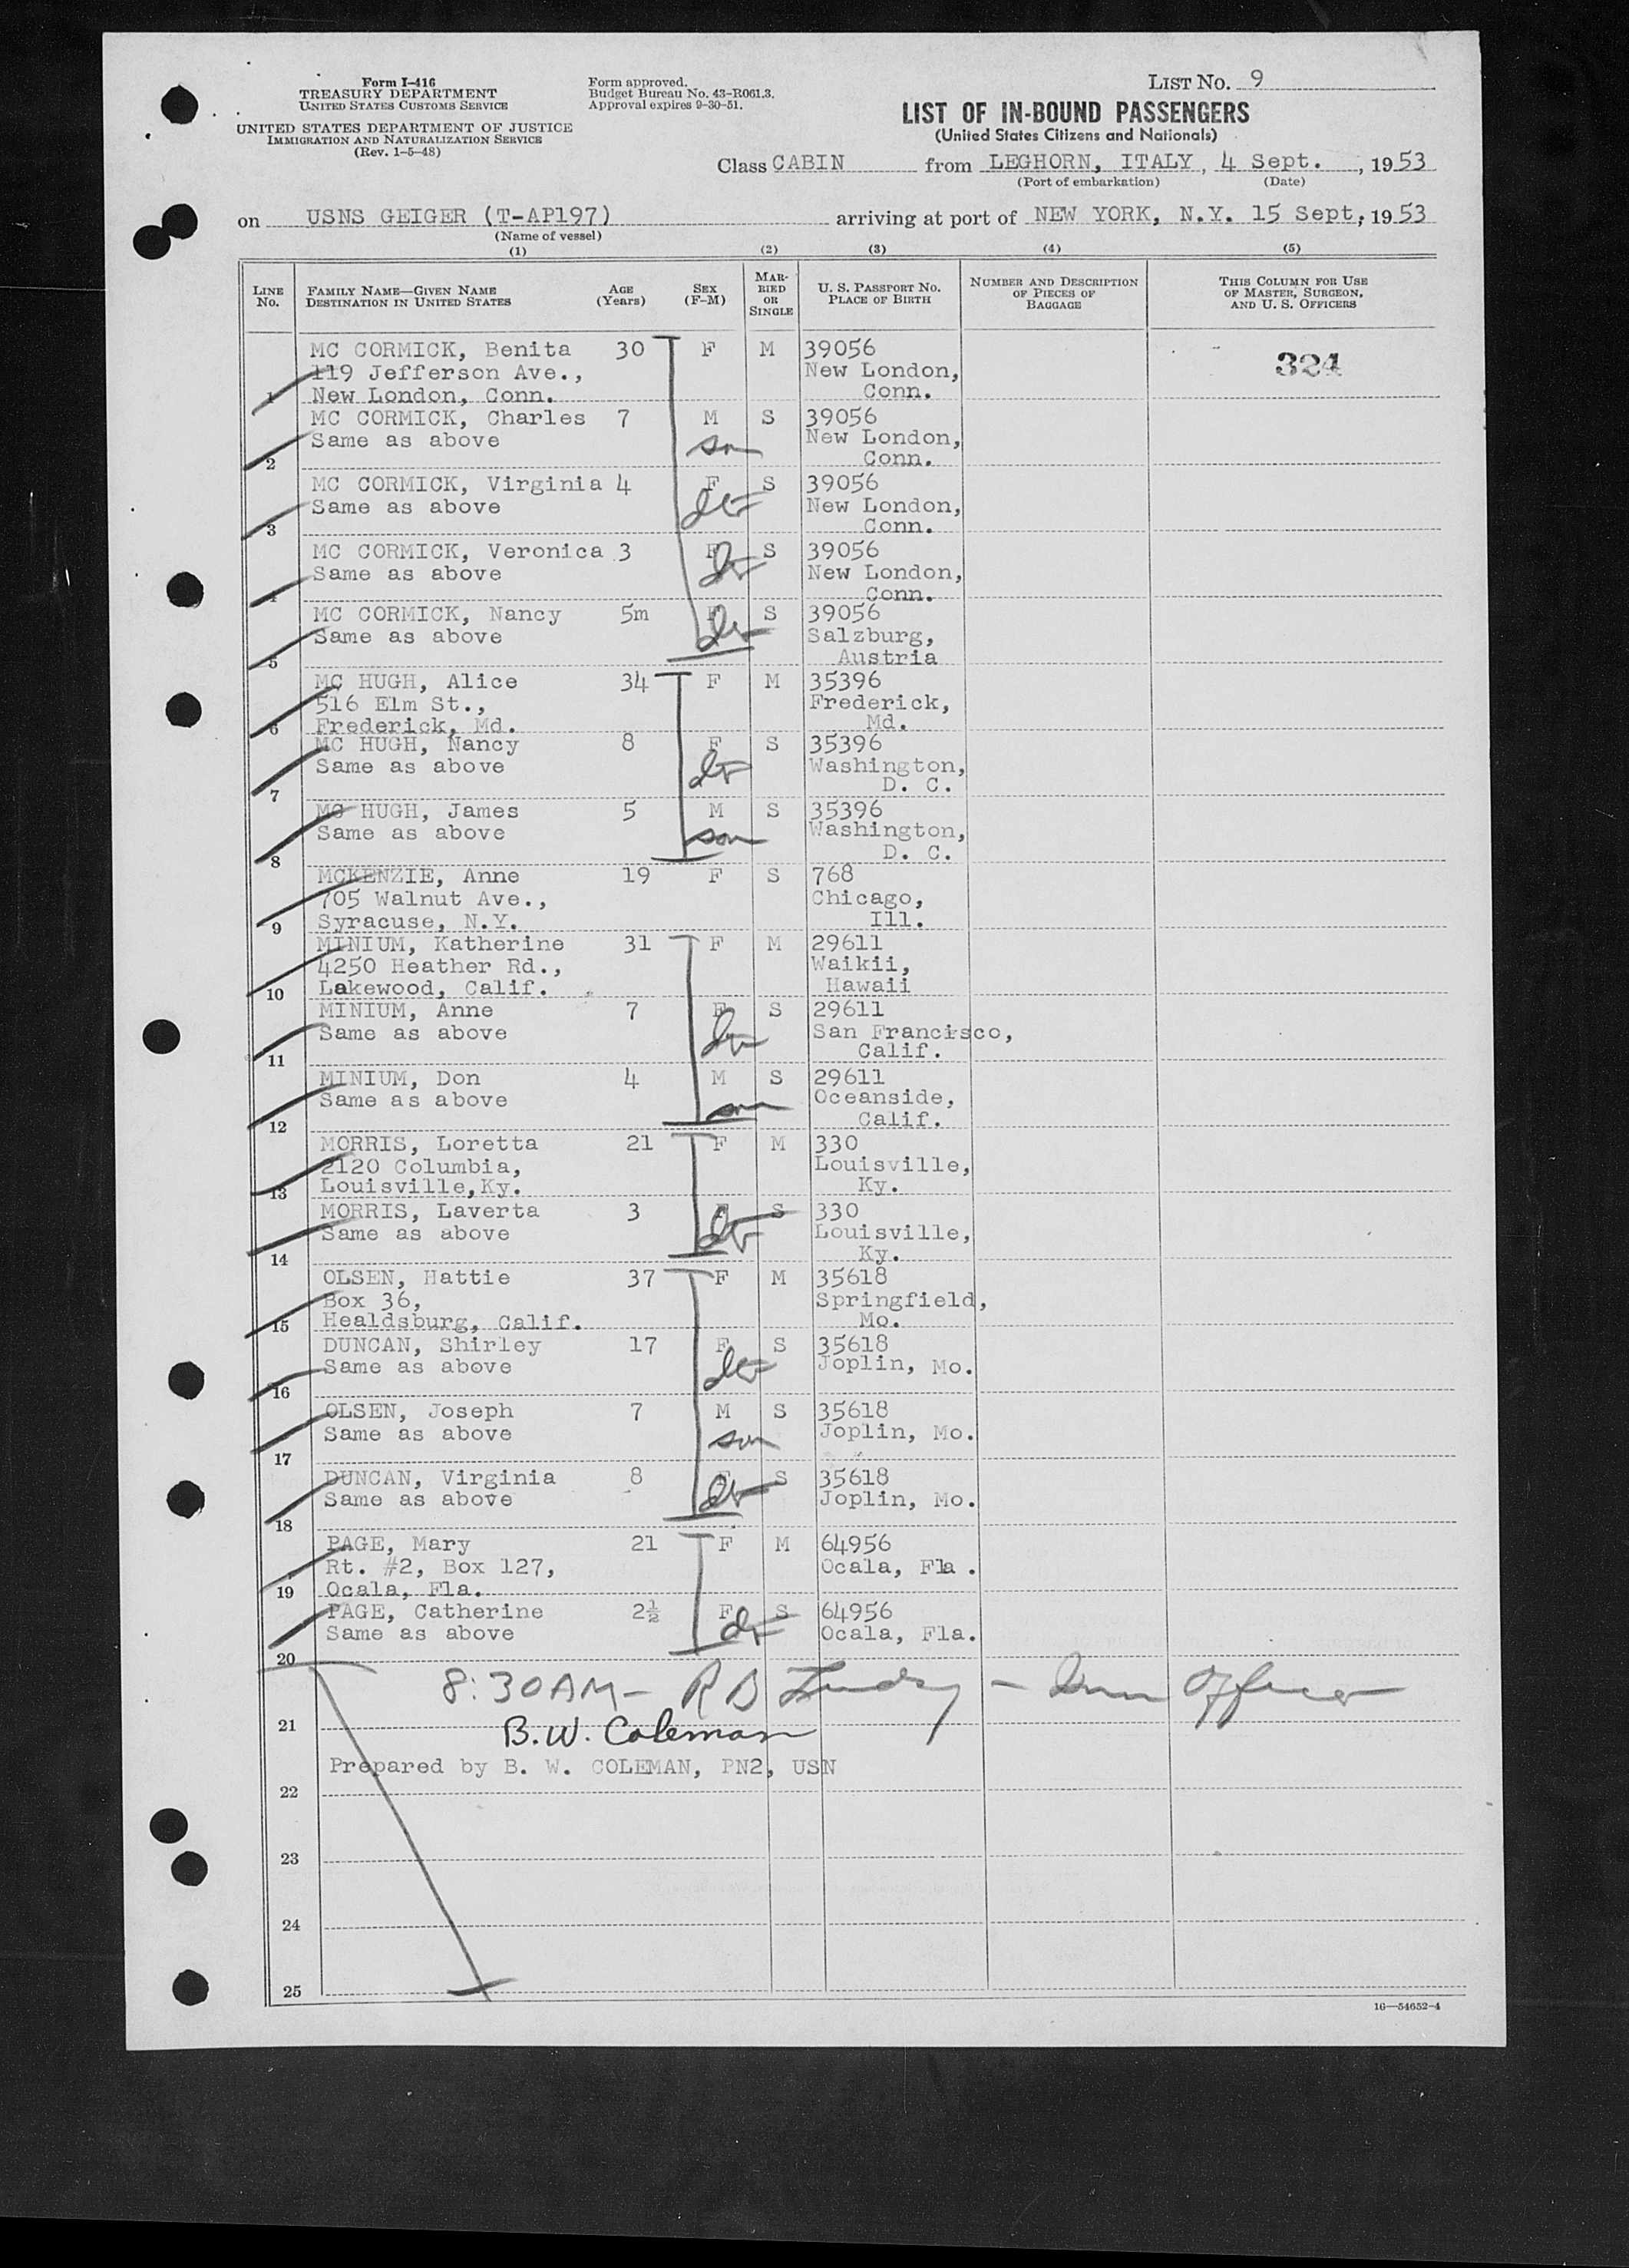 Form I-416
TREASURY DEPARTMENT
UNITED STATES CUSTOMS SERVICE
UNITED STATES DEPARTMENT OF JUSTICE
IMMIGRATION AND NATURALIZATION SERVICE
(Rev. 1-5-48)
Form approved.
Budget Bureau No. 43-R061.3.
Approval expires 9-30-51.
LIST NO. 9
LIST OF IN-BOUND PASSENGERS
(United States Citizens and Nationals)
Class CABIN from LEGHORN, ITALY, 4 Sept., 1953
(Port of embarkation) (Date)
on USNS GEIGER (T-AP197) arriving at port of NEW YORK, N.Y. 15 Sept, 1953
(Name of vessel)
(1) (2) (3) (4) (5)
LINE No. FAMILY NAME—GIVEN NAME DESTINATION IN UNITED STATES AGE (Years) SEX (F-M) MARRIED OR SINGLE U. S. PASSPORT No. PLACE OF BIRTH NUMBER AND DESCRIPTION OF PIECES OF BAGGAGE THIS COLUMN FOR USE OF MASTER, SURGEON, AND U. S. OFFICERS
MC CORMICK, Benita 30 F M 39056 324
119 Jefferson Ave., New London,
1 New London, Conn. Conn.
MC CORMICK, Charles 7 M S 39056
Same as above son New London,
2 Conn.
MC CORMICK, Virginia 4 F S 39056
Same as above dtr New London,
3 Conn.
MC CORMICK, Veronica 3 F S 39056
Same as above dtr New London,
4 Conn.
MC CORMICK, Nancy 5m F S 39056
Same as above dtr Salzburg,
5 Austria
MC HUGH, Alice 34 F M 35396
516 Elm St., Frederick,
6 Frederick, Md. Md.
MC HUGH, Nancy 8 F S 35396
Same as above dtr Washington,
7 D. C.
MC HUGH, James 5 M S 35396
Same as above son Washington,
8 D. C.
MCKENZIE, Anne 19 F S 768
705 Walnut Ave., Chicago,
9 Syracuse, N.Y. Ill.
MINIUM, Katherine 31 F M 29611
4250 Heather Rd., Waikii,
10 Lakewood, Calif. Hawaii
MINIUM, Anne 7 F S 29611
Same as above dtr San Francisco,
11 Calif.
MINIUM, Don 4 M S 29611
Same as above son Oceanside,
12 Calif.
MORRIS, Loretta 21 F M 330
2120 Columbia, Louisville,
13 Louisville,Ky. Ky.
MORRIS, Laverta 3 F S 330
Same as above dtr Louisville,
14 Ky.
OLSEN, Hattie 37 F M 35618
Box 36, Springfield,
15 Healdsburg, Calif. Mo.
DUNCAN, Shirley 17 F S 35618
Same as above dtr Joplin, Mo.
16
OLSEN, Joseph 7 M S 35618
Same as above son Joplin, Mo.
17
DUNCAN, Virginia 8 F S 35618
Same as above dtr Joplin, Mo.
18
PAGE, Mary 21 F M 64956
Rt. #2, Box 127, Ocala, Fla.
19 Ocala, Fla.
PAGE, Catherine 2½ F S 64956
Same as above dtr Ocala, Fla.
20
8:30AM- R B - Imm Officer
21 B.W. Coleman
Prepared by B. W. COLEMAN, PN2, USN
22
23
24
25
16—54652-4